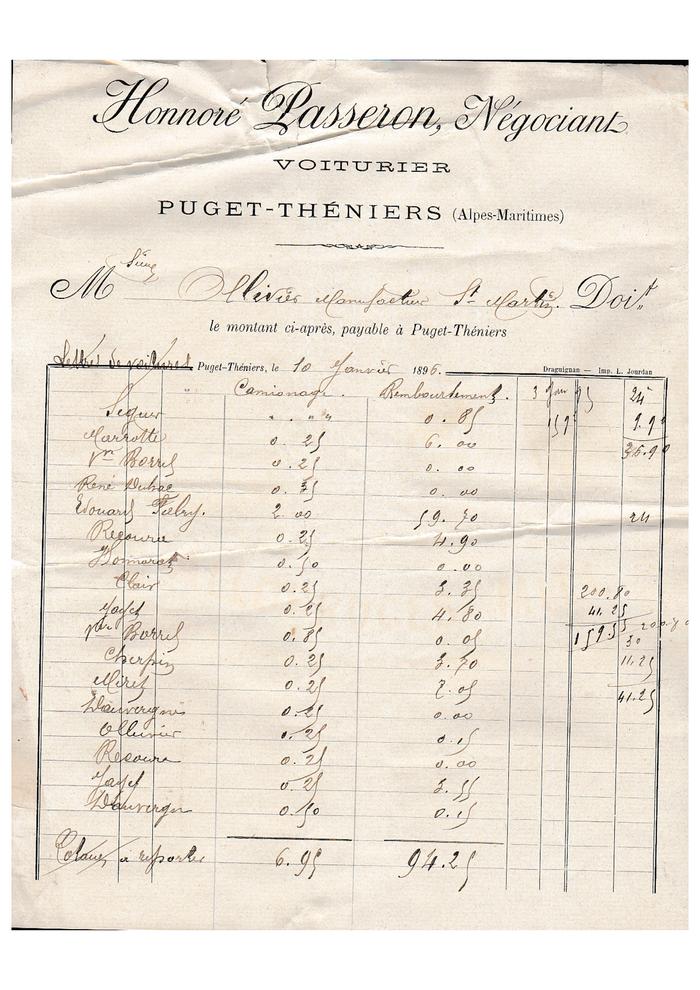 Honnoré Passeron, Négociant
VOITURIER
PUGET-THÉNIERS (Alpes-Maritimes)
M Sieur Ollivier Manufacteur St Martin. Doit
le montant ci-après, payable à Puget-Théniers
Lettres de voitures Puget-Théniers, le 10 Janvier 1896. Draguignan — Imp. L. Jourdan
" Camionage. Remboursement. 3 Janv 95 24
" " " 0.85 159 9.90
Marrotte 0.25 6.00 35.90
Vve Borrel 0.25 0.00
René Dubac 0.35 0.00
Edouard Fabry. 2.00 59.70 24
Recours 0.25 4.90
Honnorat 0.50 0.00
Clair 0.25 3.35 200.80
Jayet 0.25 4.80 41.25
Vve Borrel 0.85 0.05 159.55 30
Cherpin 0.25 3.70 11.25
Miret 0.25 7.05 41.25
Dauvergne 0.25 0.00
Ollivier 0.25 0.15
Recours 0.25 0.00
Jayet 0.25 3.55
Dauvergne 0.50 0.15
Totaux à reporter 6.95 94.25